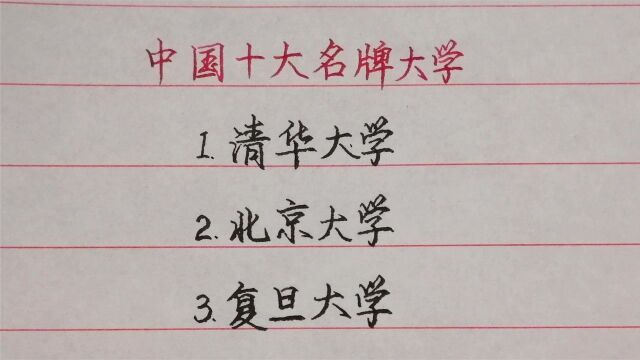 中国十大名牌大学
1.清华大学
2.北京大学
3.复旦大学